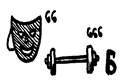 ‘‘ ‘‘‘ Б